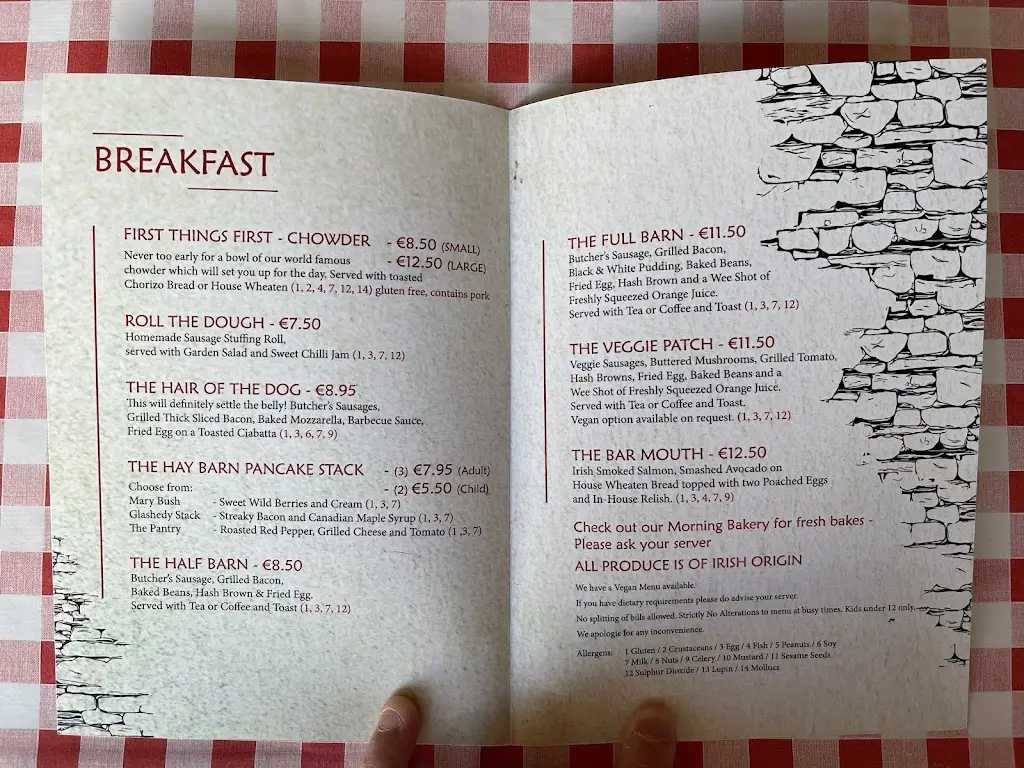 BREAKFAST
FIRST THINGS FIRST - CHOWDER - €8.50 (SMALL)
Never too early for a bowl of our world famous - €12.50 (LARGE)
chowder which will set you up for the day. Served with toasted
Chorizo Bread or House Wheaten (1, 2, 4, 7, 12, 14) gluten free, contains pork
ROLL THE DOUGH - €7.50
Homemade Sausage Stuffing Roll,
served with Garden Salad and Sweet Chilli Jam (1, 3, 7, 12)
THE HAIR OF THE DOG - €8.95
This will definitely settle the belly! Butcher's Sausages,
Grilled Thick Sliced Bacon, Baked Mozzarella, Barbecue Sauce,
Fried Egg on a Toasted Ciabatta (1, 3, 6, 7, 9)
THE HAY BARN PANCAKE STACK - (3) €7.95 (Adult)
Choose from: - (2) €5.50 (Child)
Mary Bush - Sweet Wild Berries and Cream (1, 3, 7)
Glashedy Stack - Streaky Bacon and Canadian Maple Syrup (1, 3, 7)
The Pantry - Roasted Red Pepper, Grilled Cheese and Tomato (1 ,3, 7)
THE HALF BARN - €8.50
Butcher's Sausage, Grilled Bacon,
Baked Beans, Hash Brown & Fried Egg.
Served with Tea or Coffee and Toast (1, 3, 7, 12)
THE FULL BARN - €11.50
Butcher's Sausage, Grilled Bacon,
Black & White Pudding, Baked Beans,
Fried Egg, Hash Brown and a Wee Shot of
Freshly Squeezed Orange Juice.
Served with Tea or Coffee and Toast (1, 3, 7, 12)
THE VEGGIE PATCH - €11.50
Veggie Sausages, Buttered Mushrooms, Grilled Tomato,
Hash Browns, Fried Egg, Baked Beans and a
Wee Shot of Freshly Squeezed Orange Juice.
Served with Tea or Coffee and Toast.
Vegan option available on request. (1, 3, 7, 12)
THE BAR MOUTH - €12.50
Irish Smoked Salmon, Smashed Avocado on
House Wheaten Bread topped with two Poached Eggs
and In-House Relish. (1, 3, 4, 7, 9)
Check out our Morning Bakery for fresh bakes -
Please ask your server
ALL PRODUCE IS OF IRISH ORIGIN
We have a Vegan Menu available.
If you have dietary requirements please do advise your server.
No splitting of bills allowed. Strictly No Alterations to menu at busy times. Kids under 12 only.
We apologie for any inconvenience.
Allergens: 1 Gluten / 2 Crustaceans / 3 Egg / 4 Fish / 5 Peanuts / 6 Soy
7 Milk / 8 Nuts / 9 Celery / 10 Mustard / 11 Sesame Seeds
12 Sulphur Dioxide / 13 Lupin / 14 Mollucs